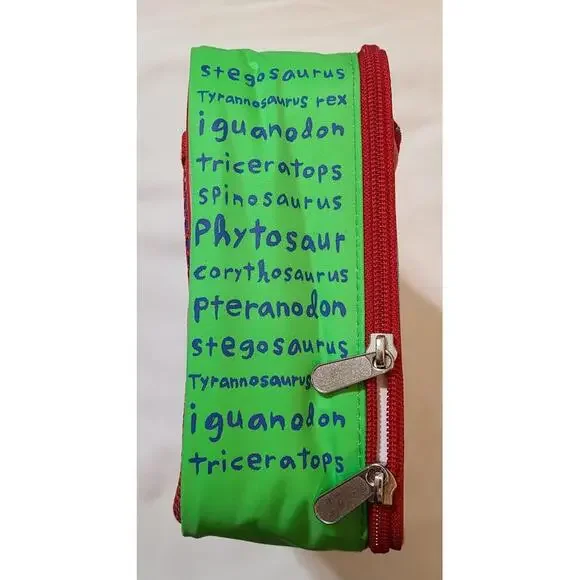 stegosaurus
Tyrannosaurus rex
iguanodon
triceratops
spinosaurus
phytosaur
corythosaurus
pteranodon
stegosaurus
Tyrannosaurus
iguanodon
triceratops